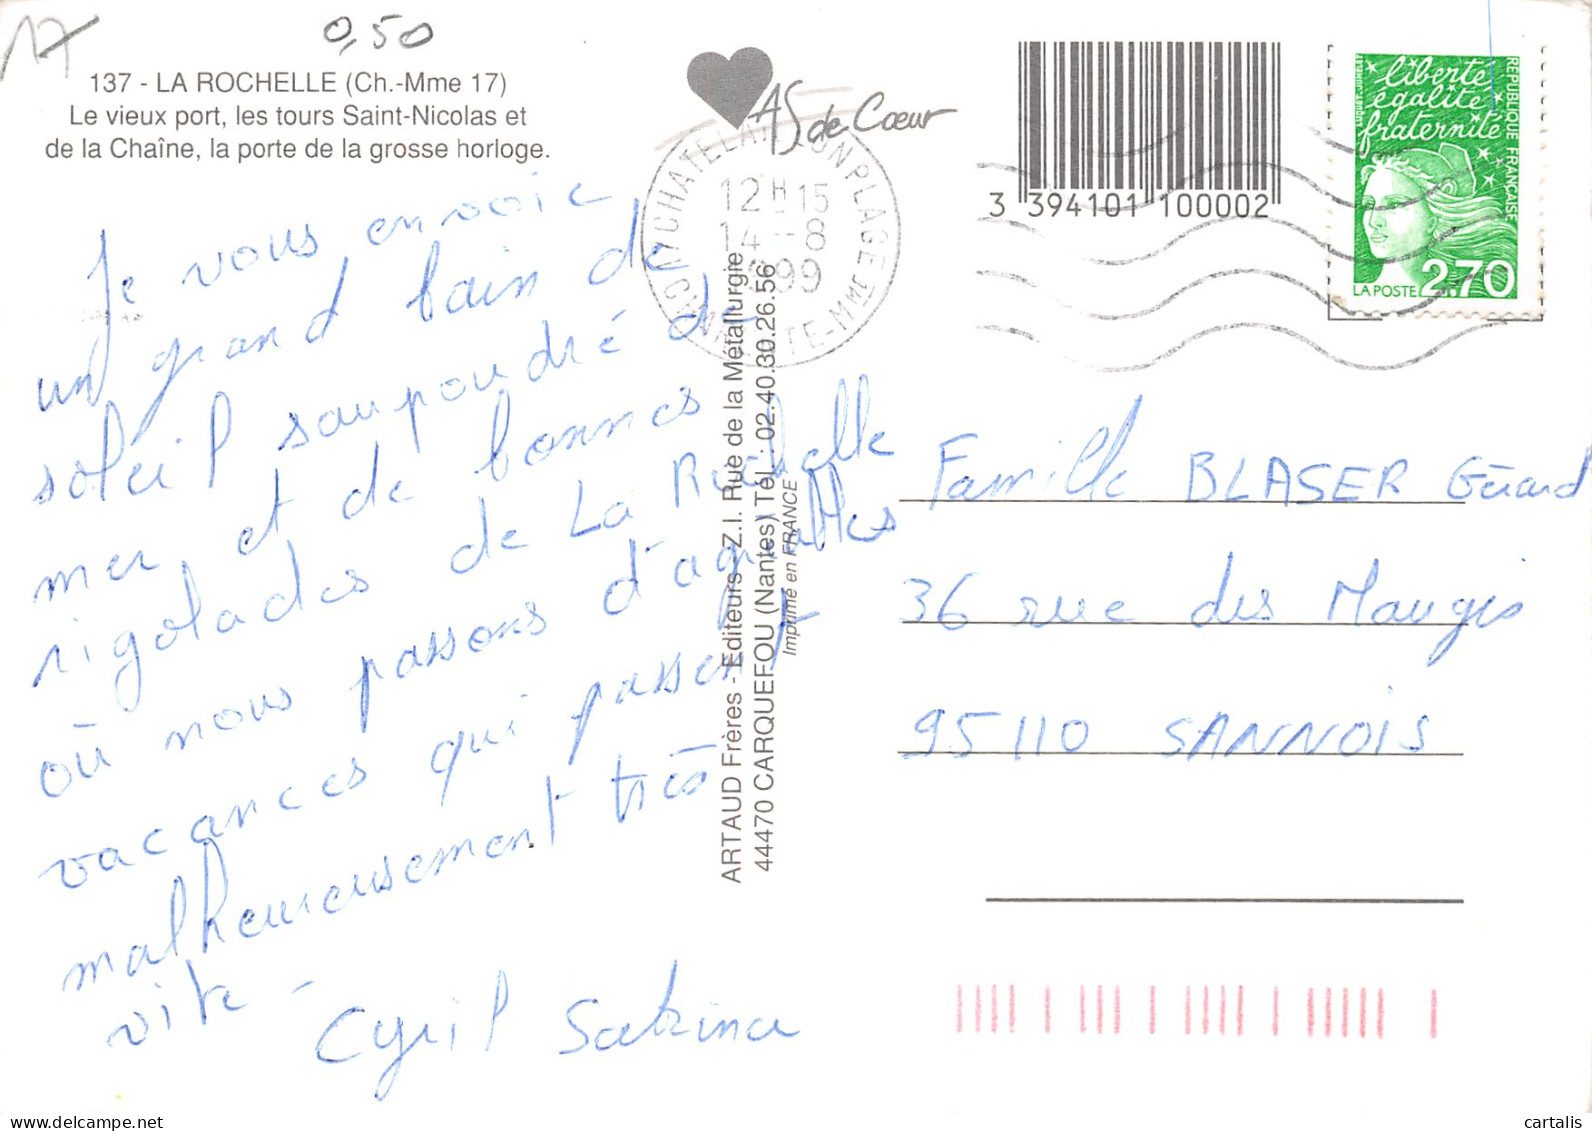 17
0,50
137 - LA ROCHELLE (Ch.-Mme 17)
Le vieux port, les tours Saint-Nicolas et
de la Chaîne, la porte de la grosse horloge.
AS de Cœur
12H15
14-8
1999
CHARENTE-MME
3 394101 100002
liberté
égalité
fraternité
REPUBLIQUE FRANÇAISE
LA POSTE 2,70
Je vous envoie
un grand bain de
soleil saupoudré de
mer et de bonnes
rigolades de La Rochelle
où nous passons d'agréables
vacances qui passent
malheureusement très
vite -
Cyril Sabrina
ARTAUD Frères - Editeurs - Z.I. Rue de la Métallurgie
44470 CARQUEFOU (Nantes) Tél. : 02.40.30.26.56
Imprimé en FRANCE
Famille BLASER Gérard
36 rue des Maugis
95110 SANNOIS
cartalis